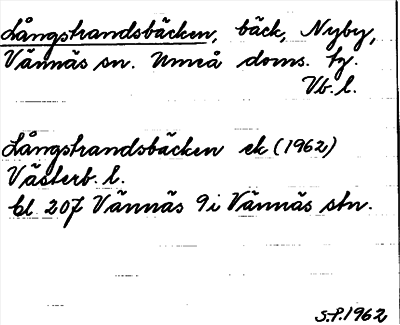 Långstrandsbäcken, bäck, Nyby,
Vännäs sn. Umeå doms. ty.
Vb. l.
Långstrandsbäcken ek (1962)
Västerb. l.
bl 207 Vännäs 9i Vännäs stn.
S.P. 1962